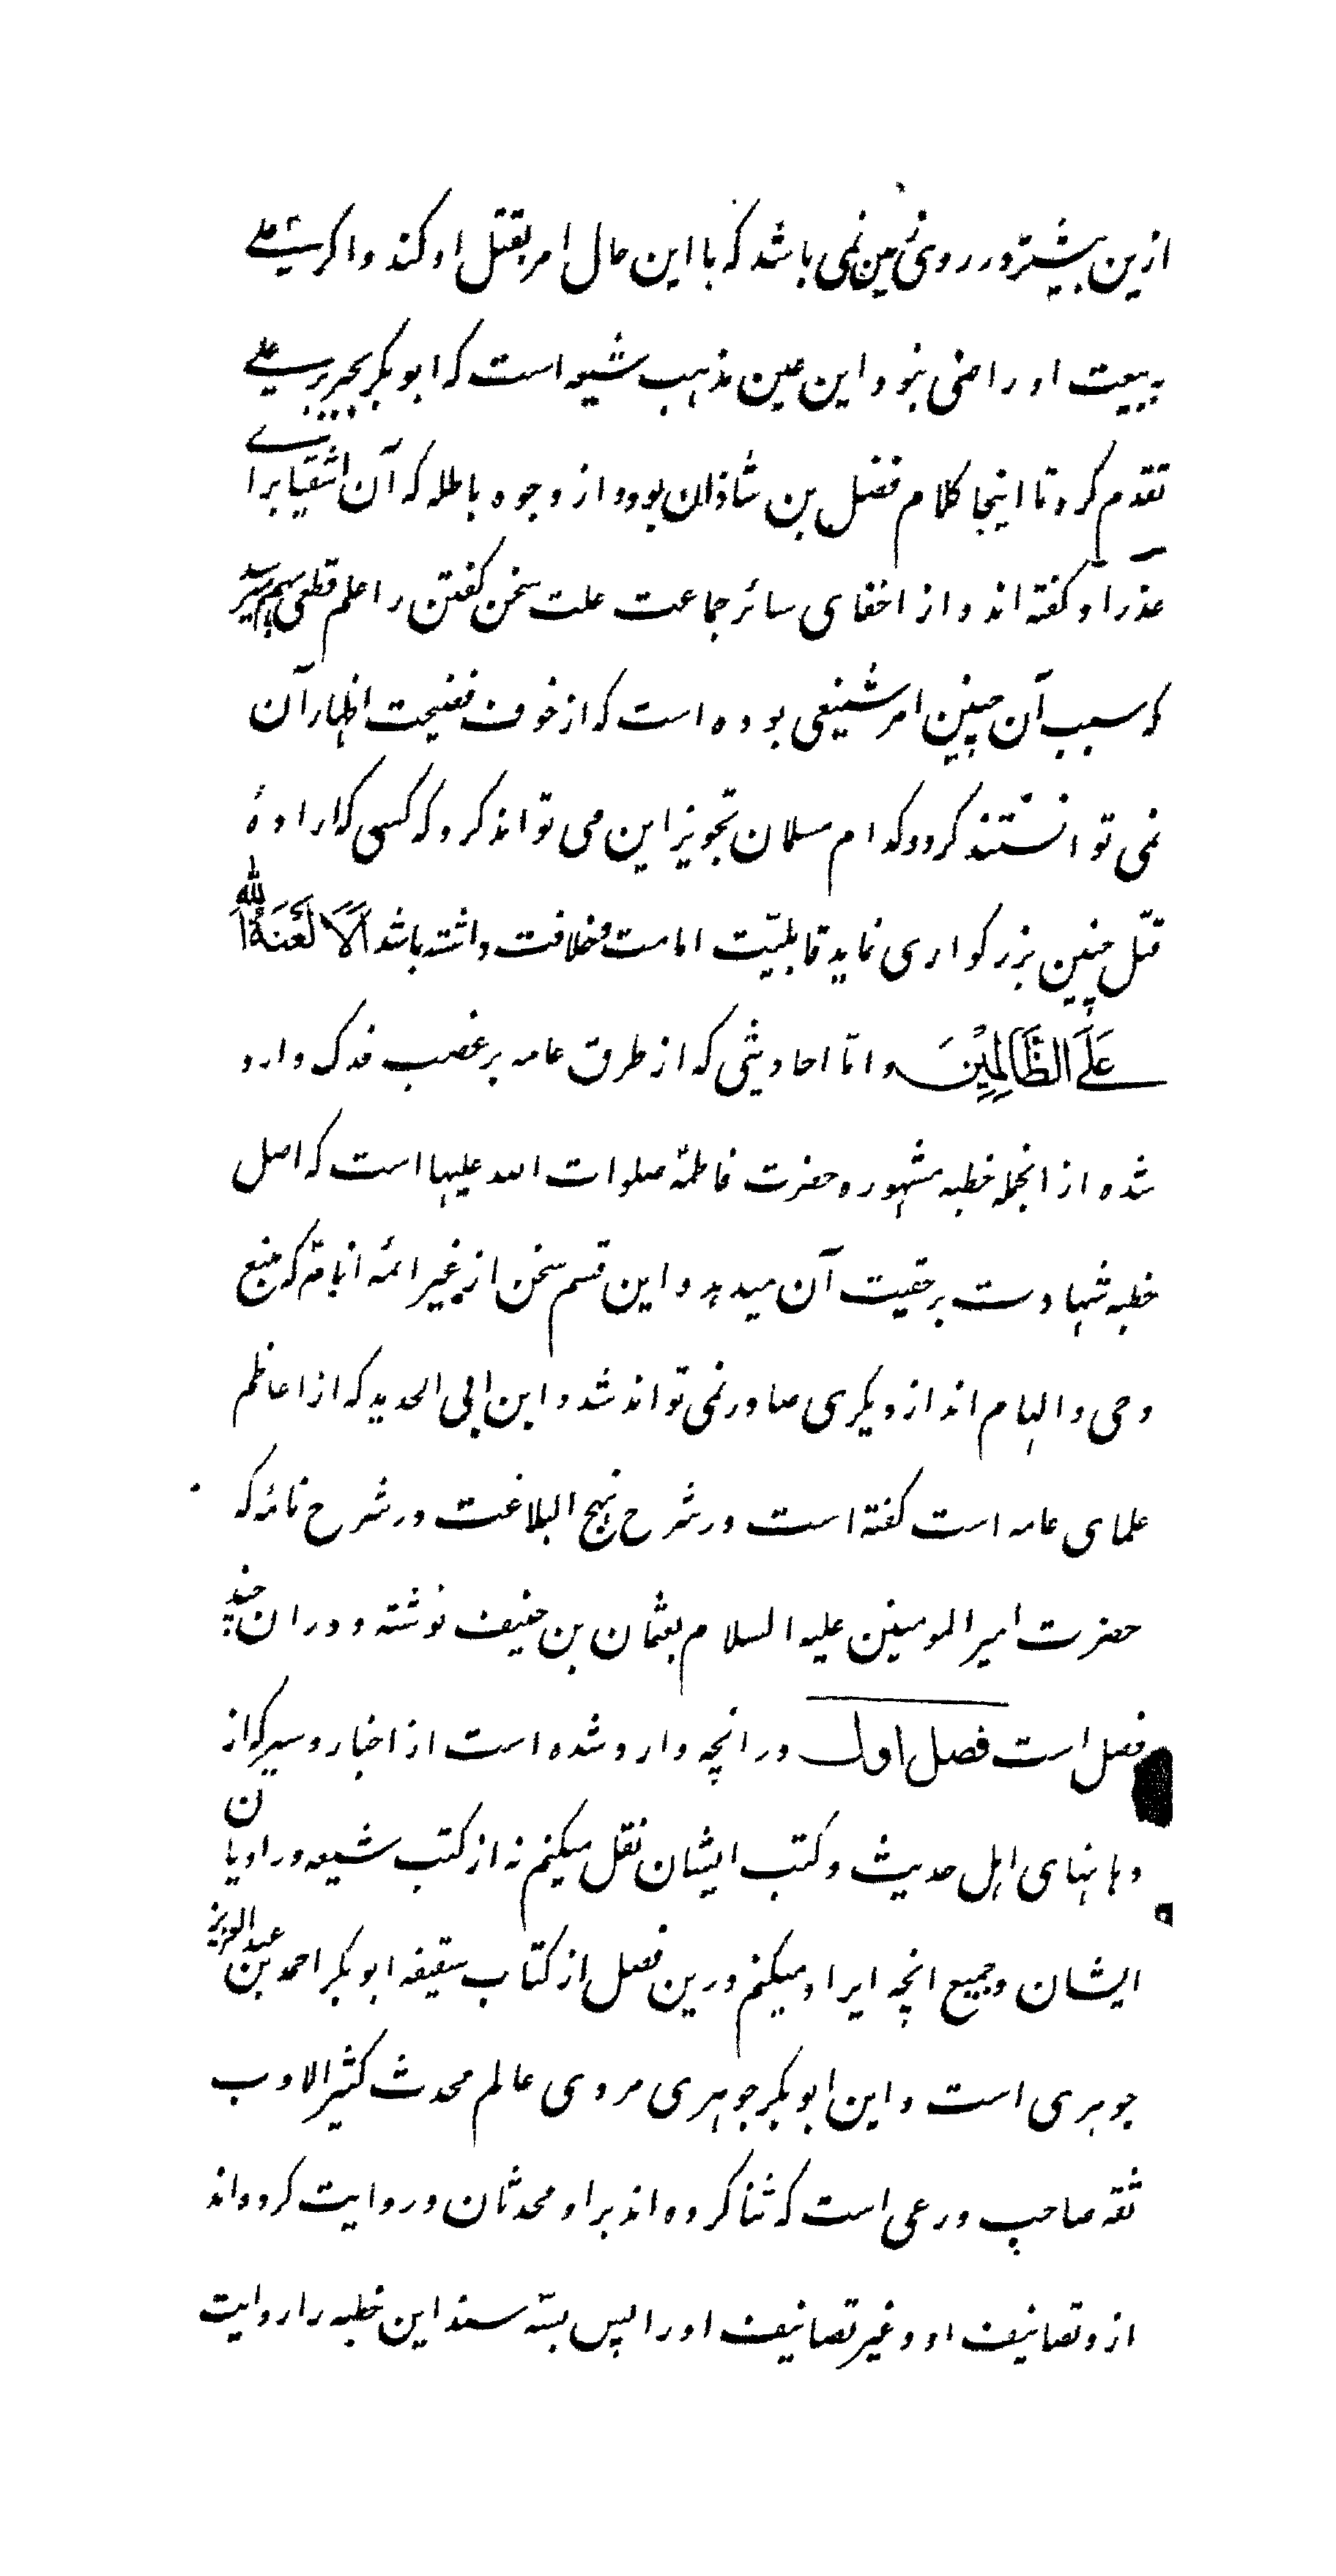 ازین بیشتر در روی زمین نمی باشد که با این حال امر بقتل او کند و اگر سیعلی
به بیعت او راضی نبود این عین مذہب شیعه است که ابوبکر بجبر بر سیعلی
تقدم کرد تا اینجا کلام فضل بن شاذان بود و از وجوه باطله که آن اشقیا برای
عذر او گفته اند و از اخفای سائر جماعت علت سخن گفتن را علم قطعی بهم میرسد
که سبب آن چنین امر شنیعی بوده است که از خوف فضیحت اظهار آن
نمی توانستند کرد و کدام مسلمان تجویز این می تواند کرد که کسی که ارادۀ
قتل چنین بزرگواری نماید قابلیّت امامت و خلافت داشته باشد اَلَا لَعْنَةُ اللّٰهِ
عَلَی الظَّالِمِیْنَ و امّا احادیثی که از طرق عامه بر غصب فدک وارد
شده از انجمله خطبه مشهوره حضرت فاطمهٔ صلوات الله علیها است که اصل
خطبه شهادت بر حقیت آن میدهد و این قسم سخن از غیر ائمه انام که منبع
وحی و الهام اند از دیگری صادر نمی تواند شد و ابن ابی الحدید که از اعاظم
علمای عامه است گفته است در شرح نهج البلاغت در شرح نامۀ که
حضرت امیر المومنین علیه السلام بعثمان بن حنیف نوشته و در ان چند
فصل است فصل اول در انچه وارد شده است از اخبار و سیر که از
دهانهای اهل حدیث و کتب ایشان نقل میکنم نه از کتب شیعه و راویان
ایشان و جمیع انچه ایراد میکنم درین فصل از کتاب سقیفه ابوبکر احمد بن عبد العزیز
جوهری است و این ابوبکر جوهری مروی عالم محدث کثیر الادب
ثقه صاحب ورعی است که ثنا کرده اند بر او محدثان و روایت کرده اند
از و تصانیف او و غیر تصانیف او را پس بسه سند این خطبه را روایت